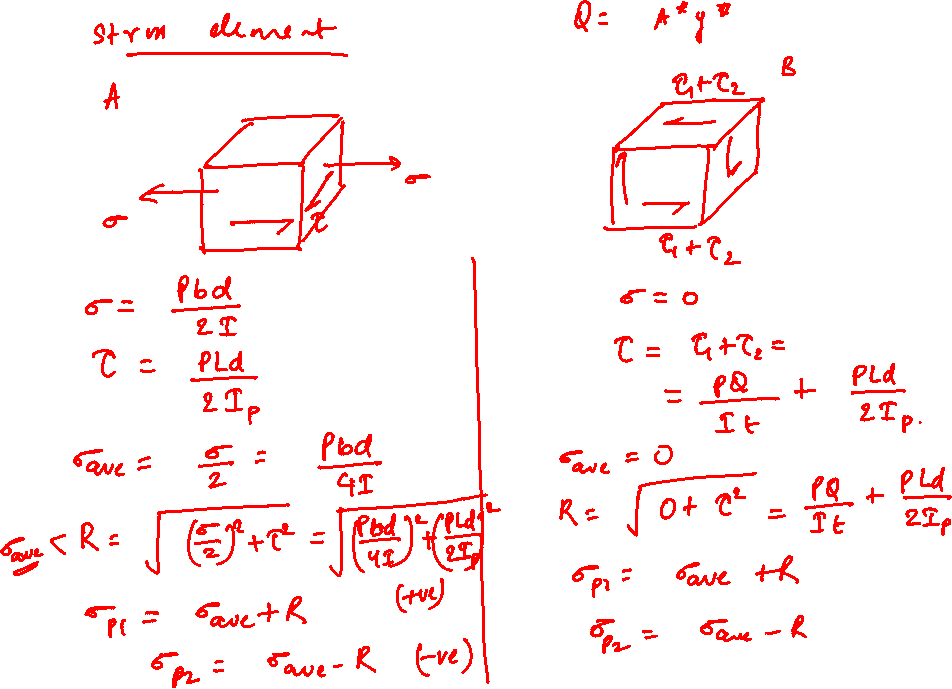 Strm element
A
σ
σ
τ
σ = Pbd / 2I
τ = PLd / 2Ip
σave = σ/2 = Pbd / 4I
σave < R = √((σ/2)² + τ²) = √((Pbd/4I)² + (PLd/2Ip)²)
(+ve)
σP1 = σave + R
σP2 = σave - R (-ve)
Q = A* y*
B
τ1+τ2
τ1+τ2
σ = 0
τ = τ1+τ2 =
= PQ / It + PLd / 2Ip.
σave = 0
R = √(0 + τ²) = PQ / It + PLd / 2Ip
σP1 = σave + R
σP2 = σave - R